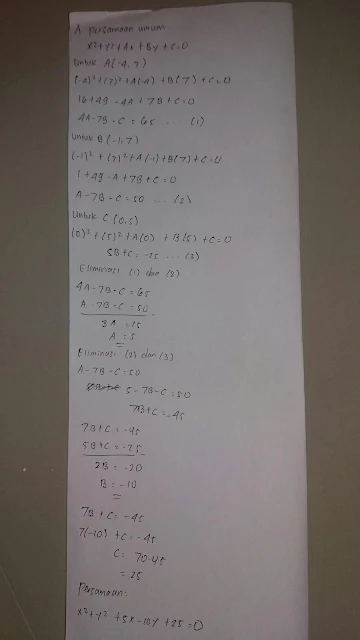 A. persamaan umum
x²+y²+Ax+By+C=0
Untuk A(-4,7)
(-4)²+(7)²+A(-4)+B(7)+C=0
16+49-4A+7B+C=0
4A-7B-C=65 .... (1)
Untuk B(-1,7)
(-1)²+(7)²+A(-1)+B(7)+C=0
1+49-A+7B+C=0
A-7B-C=50 .... (2)
Untuk C(0,5)
(0)²+(5)²+A(0)+B(5)+C=0
5B+C=-25 ... (3)
Eliminasi (1) dan (2)
4A-7B-C=65
A-7B-C=50
3A=15
A=5
Eliminasi (2) dan (3)
A-7B-C=50
5-7B-C=50
7B+C=-45
7B+C=-45
5B+C=-25
2B=-20
B=-10
7B+C=-45
7(-10)+C=-45
C=70-45
=25
Persamaan:
x²+y²+5x-10y+25=0